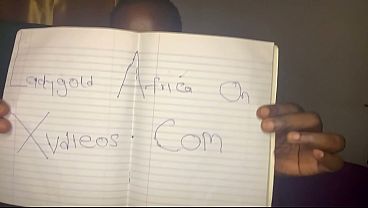 Ladygold Africa On
Xvdieos.Com